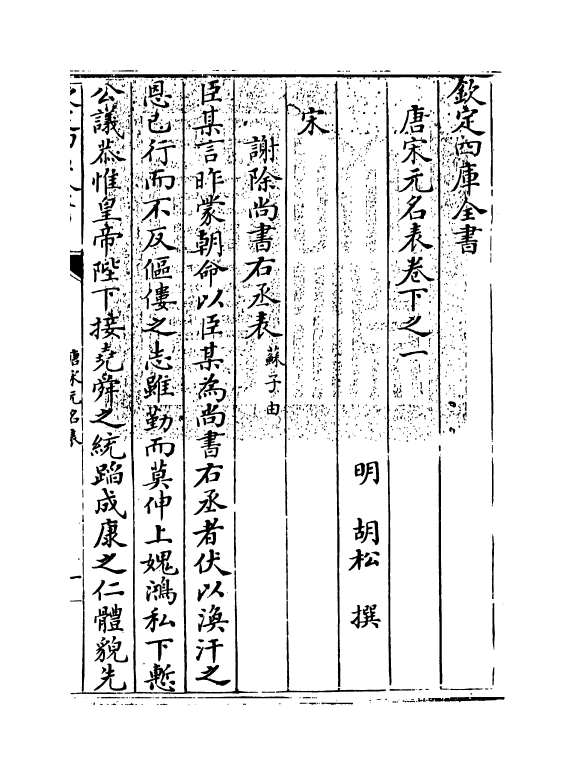 欽定四庫全書
唐宋元名表卷下之一
明 胡松 撰
宋
謝除尚書右丞表 蘇子由
臣某言昨蒙朝命以臣某為尚書右丞者伏以渙汗之
恩已行而不反傴僂之志雖勤而莫伸上媿鴻私下慙
公議恭惟皇帝陛下接堯舜之統蹈成康之仁體貌先
唐宋元名表
一